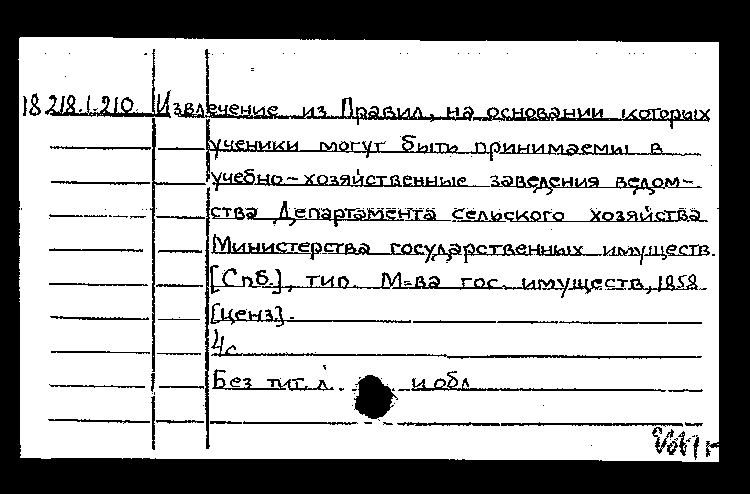 18.218.1.210 Извлечение из Правил, на основании которых
ученики могут быть принимаемы в
учебно-хозяйственные заведения ведом-
ства Департамента сельского хозяйства
Министерства государственных имуществ.
[Спб.], тип. М-ва гос. имуществ, 1858
[ценз].
4с
Без тит. л. и обл